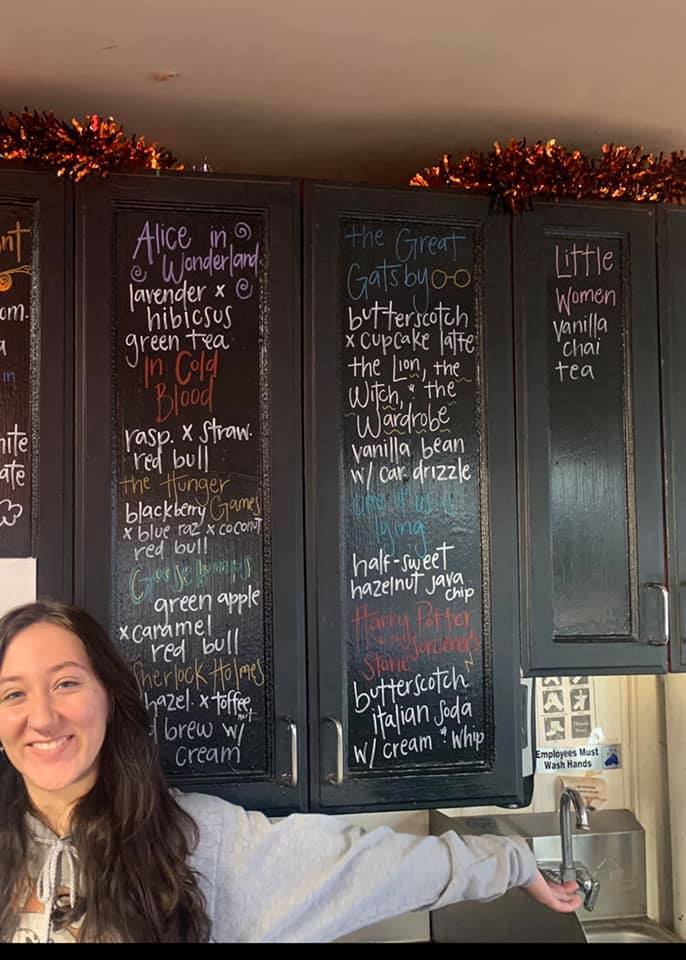 nt
om.
a
in
hite
ate
Alice in
Wonderland
lavender x
hibicsus
green tea
In Cold
Blood
rasp. x straw.
red bull
the Hunger
blackberry Games
x blue raz x coconut
red bull
Goosebumps
green apple
x caramel
red bull
Sherlock Holmes
hazel. x toffee
nut
brew w/
cream
the Great
Gatsby
butterscotch
x cupcake latte
the Lion, the
Witch, & the
Wardrobe
vanilla bean
w/ car. drizzle
one of us is
lying
half-sweet
hazelnut java
chip
Harry Potter
Sorcerers
Stone
butterscotch
italian soda
w/ cream & whip
Little
Women
vanilla
chai
tea
Employees Must
Wash Hands